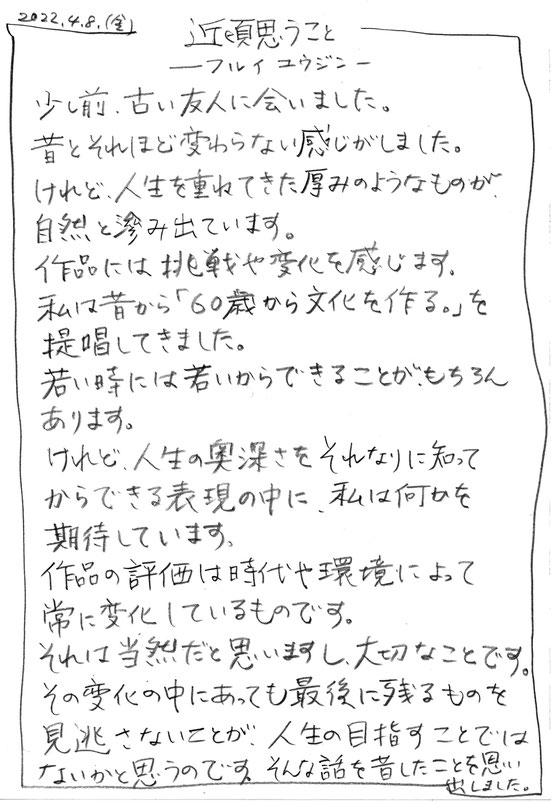 2022.4.8.(金)
近頃思うこと
―フルイ ユウジン―
少し前、古い友人に会いました。
昔とそれほど変わらない感じがしました。
けれど、人生を重ねてきた厚みのようなものが、
自然と滲み出ています。
作品には挑戦や変化を感じます。
私は昔から「60歳から文化を作る。」を
提唱してきました。
若い時には若いからできることが、もちろん
あります。
けれど、人生の奥深さをそれなりに知って
からできる表現の中に、私は何かを
期待しています。
作品の評価は時代や環境によって
常に変化しているものです。
それは当然だと思いますし、大切なことです。
その変化の中にあっても最後に残るものを
見逃さないことが、人生の目指すことでは
ないかと思うのです。そんな話を昔したことを思い
出しました。